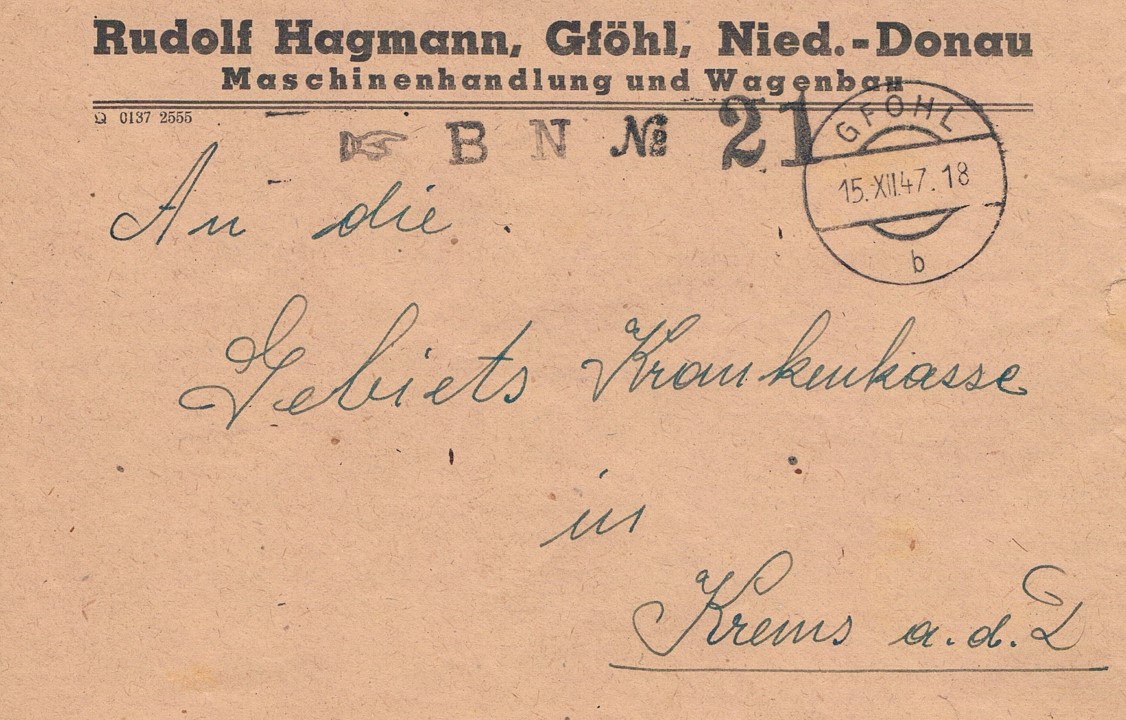 Rudolf Hagmann, Gföhl, Nied.-Donau
Maschinenhandlung und Wagenbau
Ω 0137 2555
☞ B N № 21
GFÖHL
15.XII.47.18
b
An die
Gebiets Krankenkasse
in
Krems a.d.D